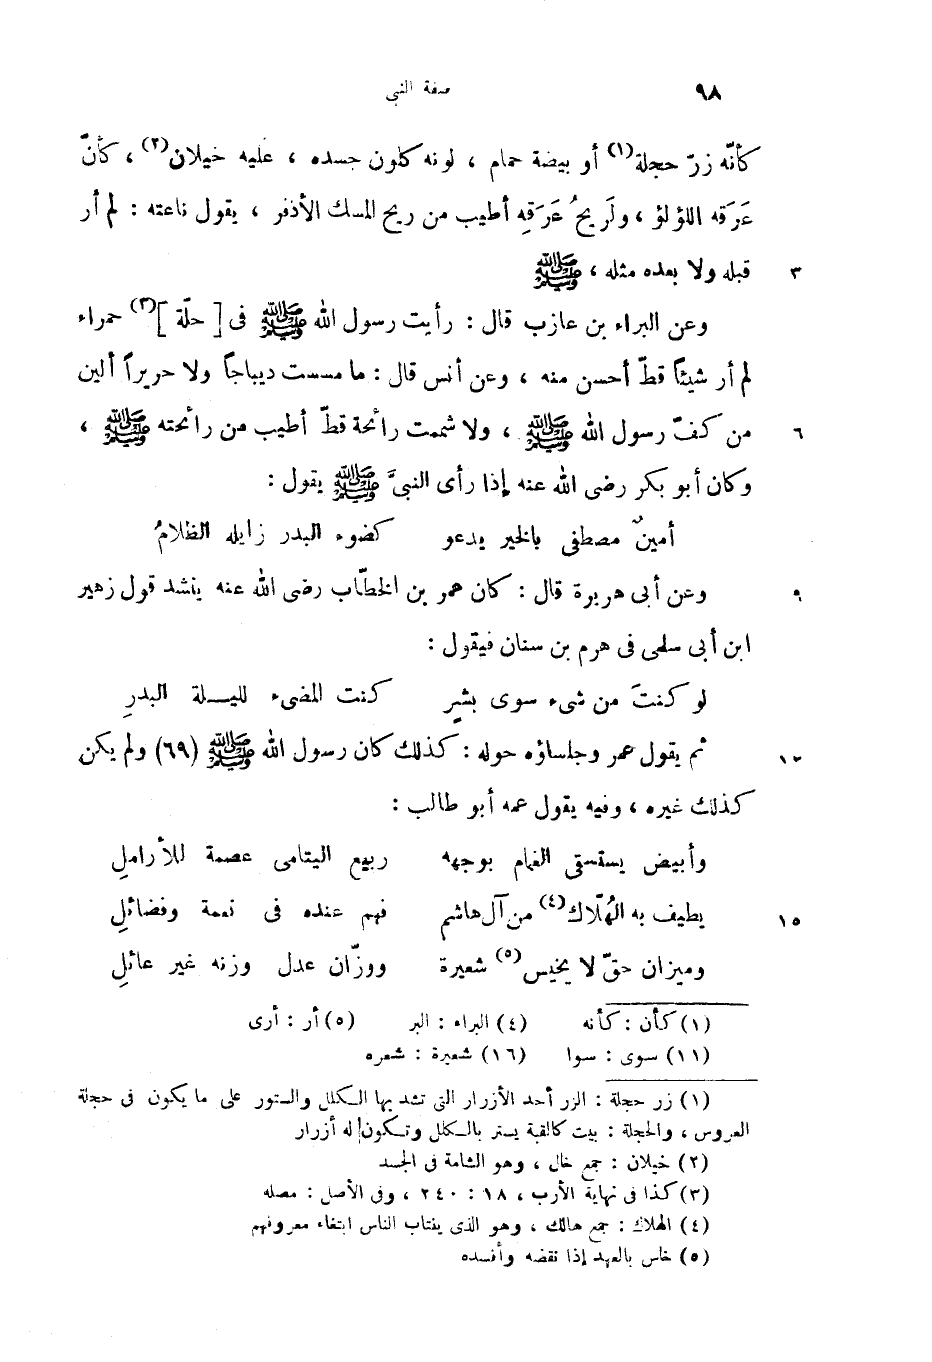 ٩٨ صفة النبى
كأنّه زرّ حجلة(١) أو بيضة حمام ، لونه كلون جسده ، عليه خيلان(٢) ، كأنّ
عَرَقه اللؤلؤ ، ولَريحُ عَرَقِه أطيب من ريح المسك الأذفر ، يقول ناعته : لم أر
٣ قبله ولا بعده مثله ، ﷺ
وعن البراء بن عازب قال : رأيت رسول الله ﷺ فى [ حلّة ](٣) حمراء
لم أر شيئاً قطّ أحسن منه ، وعن أنس قال : ما مسست ديباجاً ولا حريراً ألين
٦ من كفّ رسول الله ﷺ ، ولا شممت رائحة قطّ أطيب من رائحته ﷺ ،
وكان أبو بكر رضى الله عنه إذا رأى النبىَّ ﷺ يقول :
أمينٌ مصطفى بالخير يدعو كضوء البدر زايله الظلامُ
٩ وعن أبى هريرة قال : كان عمر بن الخطّاب رضى الله عنه ينشد قول زهير
ابن أبى سلمى فى هرم بن سنان فيقول :
لو كنتَ من شىء سوى بشرٍ كنت المضىء لليـلة البدرِ
١٢ ثم يقول عمر وجلساؤه حوله : كذلك كان رسول الله ﷺ (٦٩) ولم يكن
كذلك غيره ، وفيه يقول عمه أبو طالب :
وأبيض يستسقى الغمام بوجهه ربيع اليتامى عصمة للأراملِ
١٥ يطيف به الهُلّاك(٤) من آل هاشم فهم عنده فى نعمة وفضائلِ
وميزان حقّ لا يخيس(٥) شعيرة ووزّان عدل وزنه غير عائلِ
(١) كأن : كأنه (٤) البراء : البر (٥) أر : أرى
(١١) سوى : سوا (١٦) شعيرة : شعره
(١) زر حجلة : الزر أحد الأزرار التى تشد بها الكلل والستور على ما يكون فى حجلة
العروس ، والحجلة : بيت كالقبة يستر بالكلل وتكون له أزرار
(٢) خيلان : جمع خال ، وهو الشامة فى الجسد
(٣) كذا فى نهاية الأرب ، ١٨ : ٢٤٠ ، وفى الأصل : مصله
(٤) الهلاك : جمع هالك ، وهو الذى ينتاب الناس ابتغاء معروفهم
(٥) خاس بالعهد إذا نقضه وأفسده